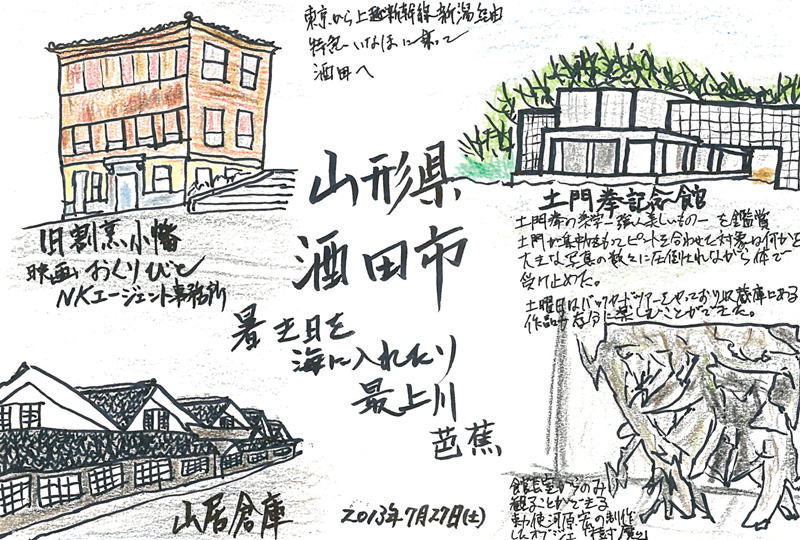 東京から上越新幹線新潟経由
特急いなほに乗って
酒田へ
山形県
酒田市
暑き日を
海に入れたり
最上川
芭蕉
旧割烹小幡
映画おくりびと
NKエージェント事務所
土門拳記念館
土門拳の美学ー強く美しいものーを鑑賞
土門が集中をもってピントを合わせた対象は何かを
大きな写真の数々に圧倒されながら体で
受け止めた。
土曜日はバックヤードツアーをやっており収蔵庫にある
作品も存分に楽しむことができた。
館長室からのみ
観ることができる
勅使河原宏の制作
したオブジェ
山居倉庫
2013年7月27日(土)